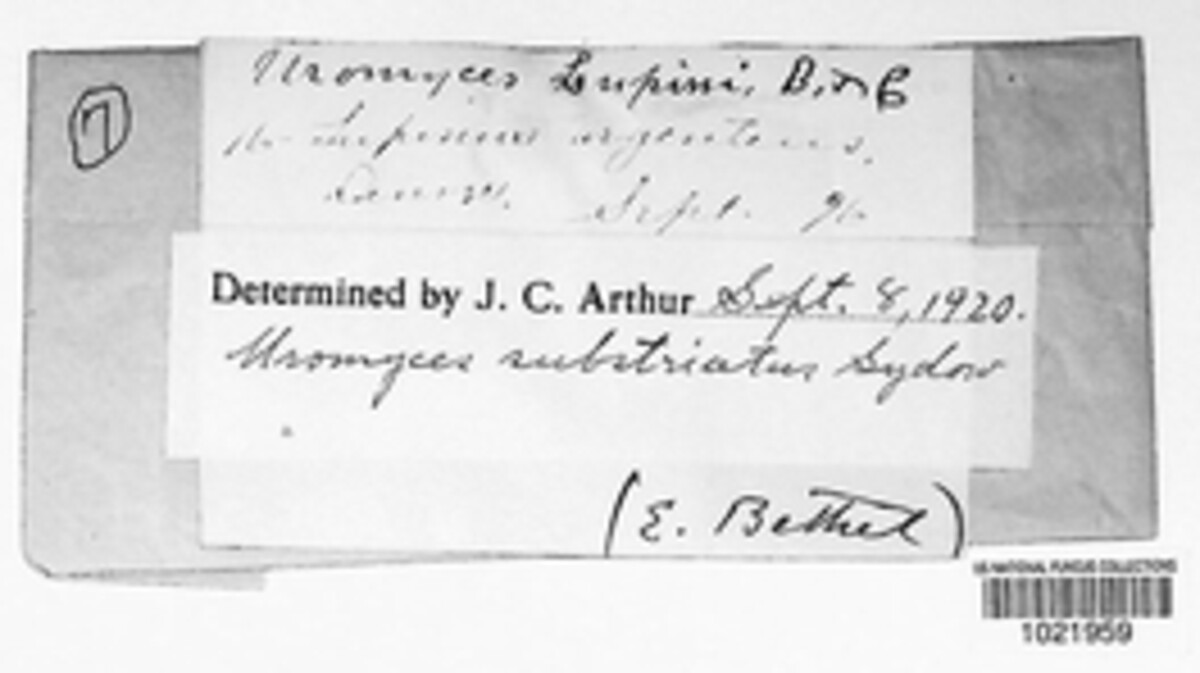 7
Uromyces Lupini, B. & C
on Lupinus argenteus,
Sept. 96
Determined by J. C. Arthur Sept. 8, 1920.
Uromyces substriatus Sydow
(E. Bethel)
US NATIONAL FUNGUS COLLECTIONS
1021959